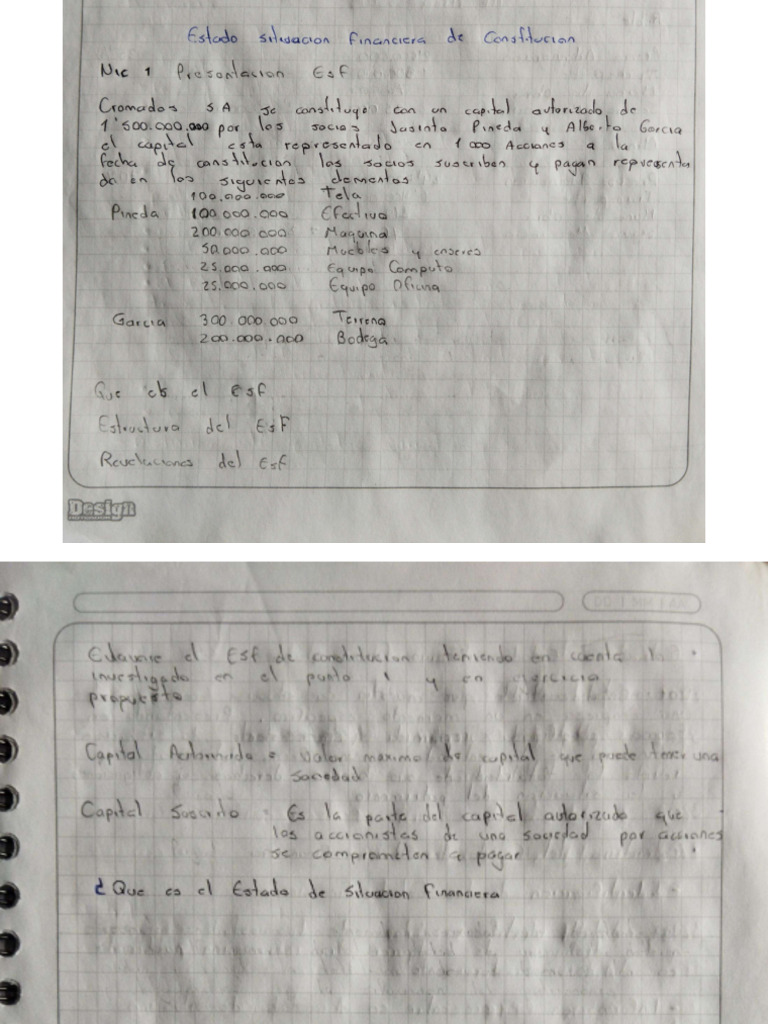 Estado situacion financiera de Constitucion
Nic 1 Presentacion ESF
Cromados S.A se constituye con un capital autorizado de
1'500.000.000 por los socios Jasinto Pineda y Alberto Garcia
el capital esta representado en 1000 Acciones a la
fecha de constitucion los socios suscriben y pagan representa
do en los siguientes elementos
100.000.000 Tela
Pineda 100.000.000 Efectivo
200.000.000 Maquina
50.000.000 Muebles y enseres
25.000.000 Equipo Computo
25.000.000 Equipo Oficina
Garcia 300.000.000 Terreno
200.000.000 Bodega
Que es el ESF
Estructura del ESF
Revelaciones del ESF
Design
el ESF de constitucion teniendo en cuenta
investigado en el punto 1 y en ejercicio
propuesto
Capital Autorizado = valor maximo de capital que puede tener una
sociedad
Capital Suscrito : Es la parte del capital autorizado que
los accionistas de una sociedad por acciones
se comprometen a pagar
¿Que es el Estado de Situacion financiera